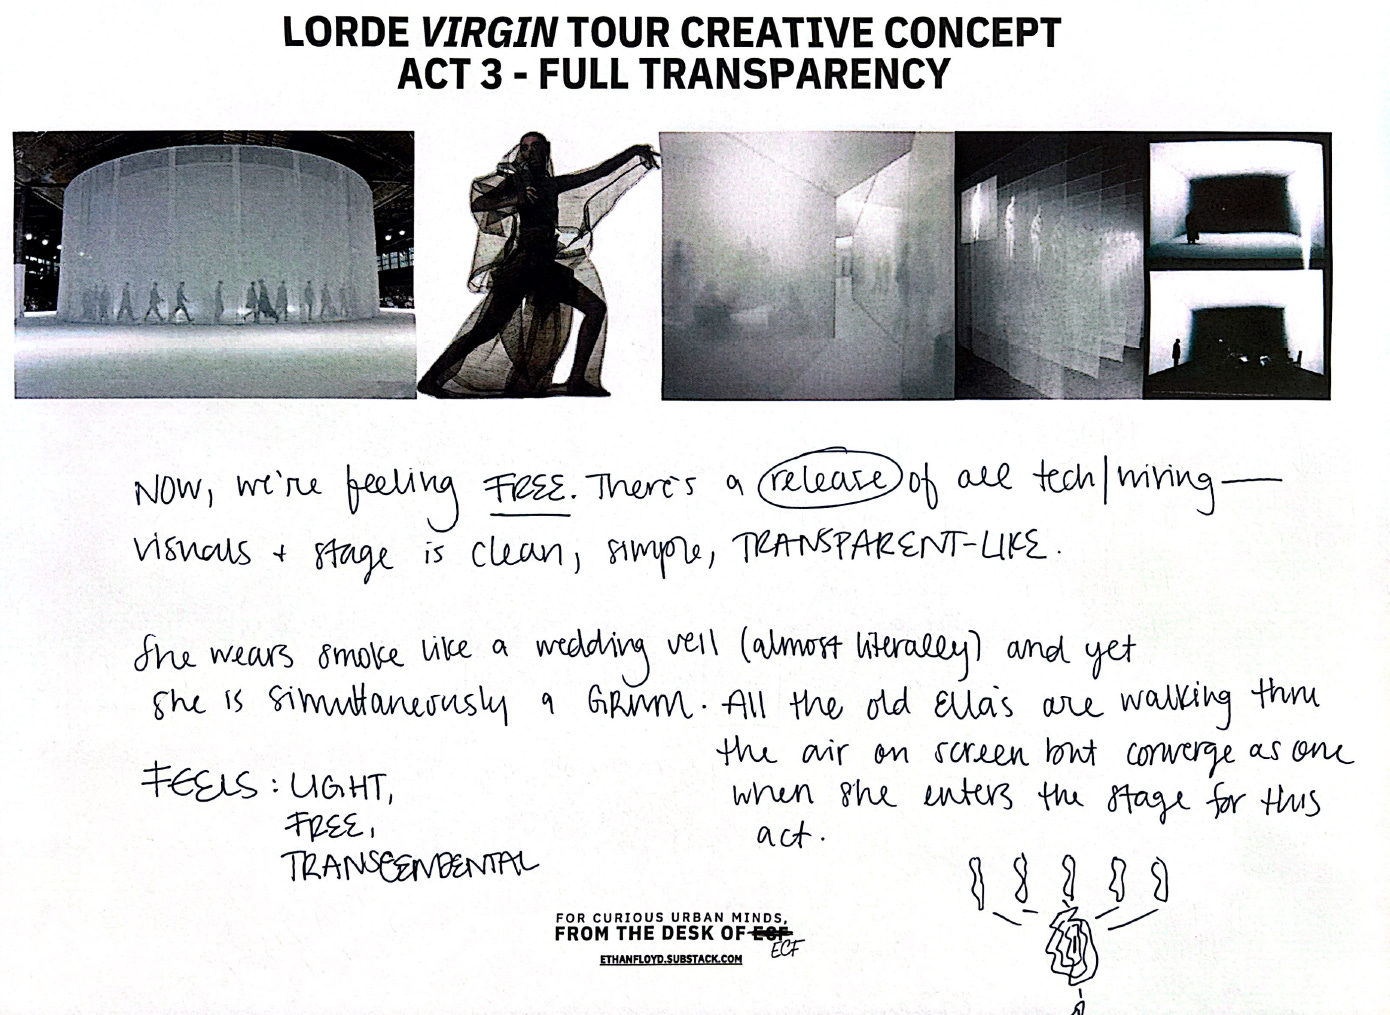 LORDE VIRGIN TOUR CREATIVE CONCEPT
ACT 3 - FULL TRANSPARENCY
NOW, we're feeling FREE. There's a release of all tech/wiring—
visuals + stage is clean, simple, TRANSPARENT-LIKE.
She wears smoke like a wedding veil (almost literally) and yet
she is simultaneously a GRUM. All the old Ella's are walking thru
the air on screen but converge as one
when she enters the stage for this
act.
FEELS: LIGHT,
FREE,
TRANSCENDENTAL
FOR CURIOUS URBAN MINDS,
FROM THE DESK OF ECF
ECF
ETHANFLOYD.SUBSTACK.COM